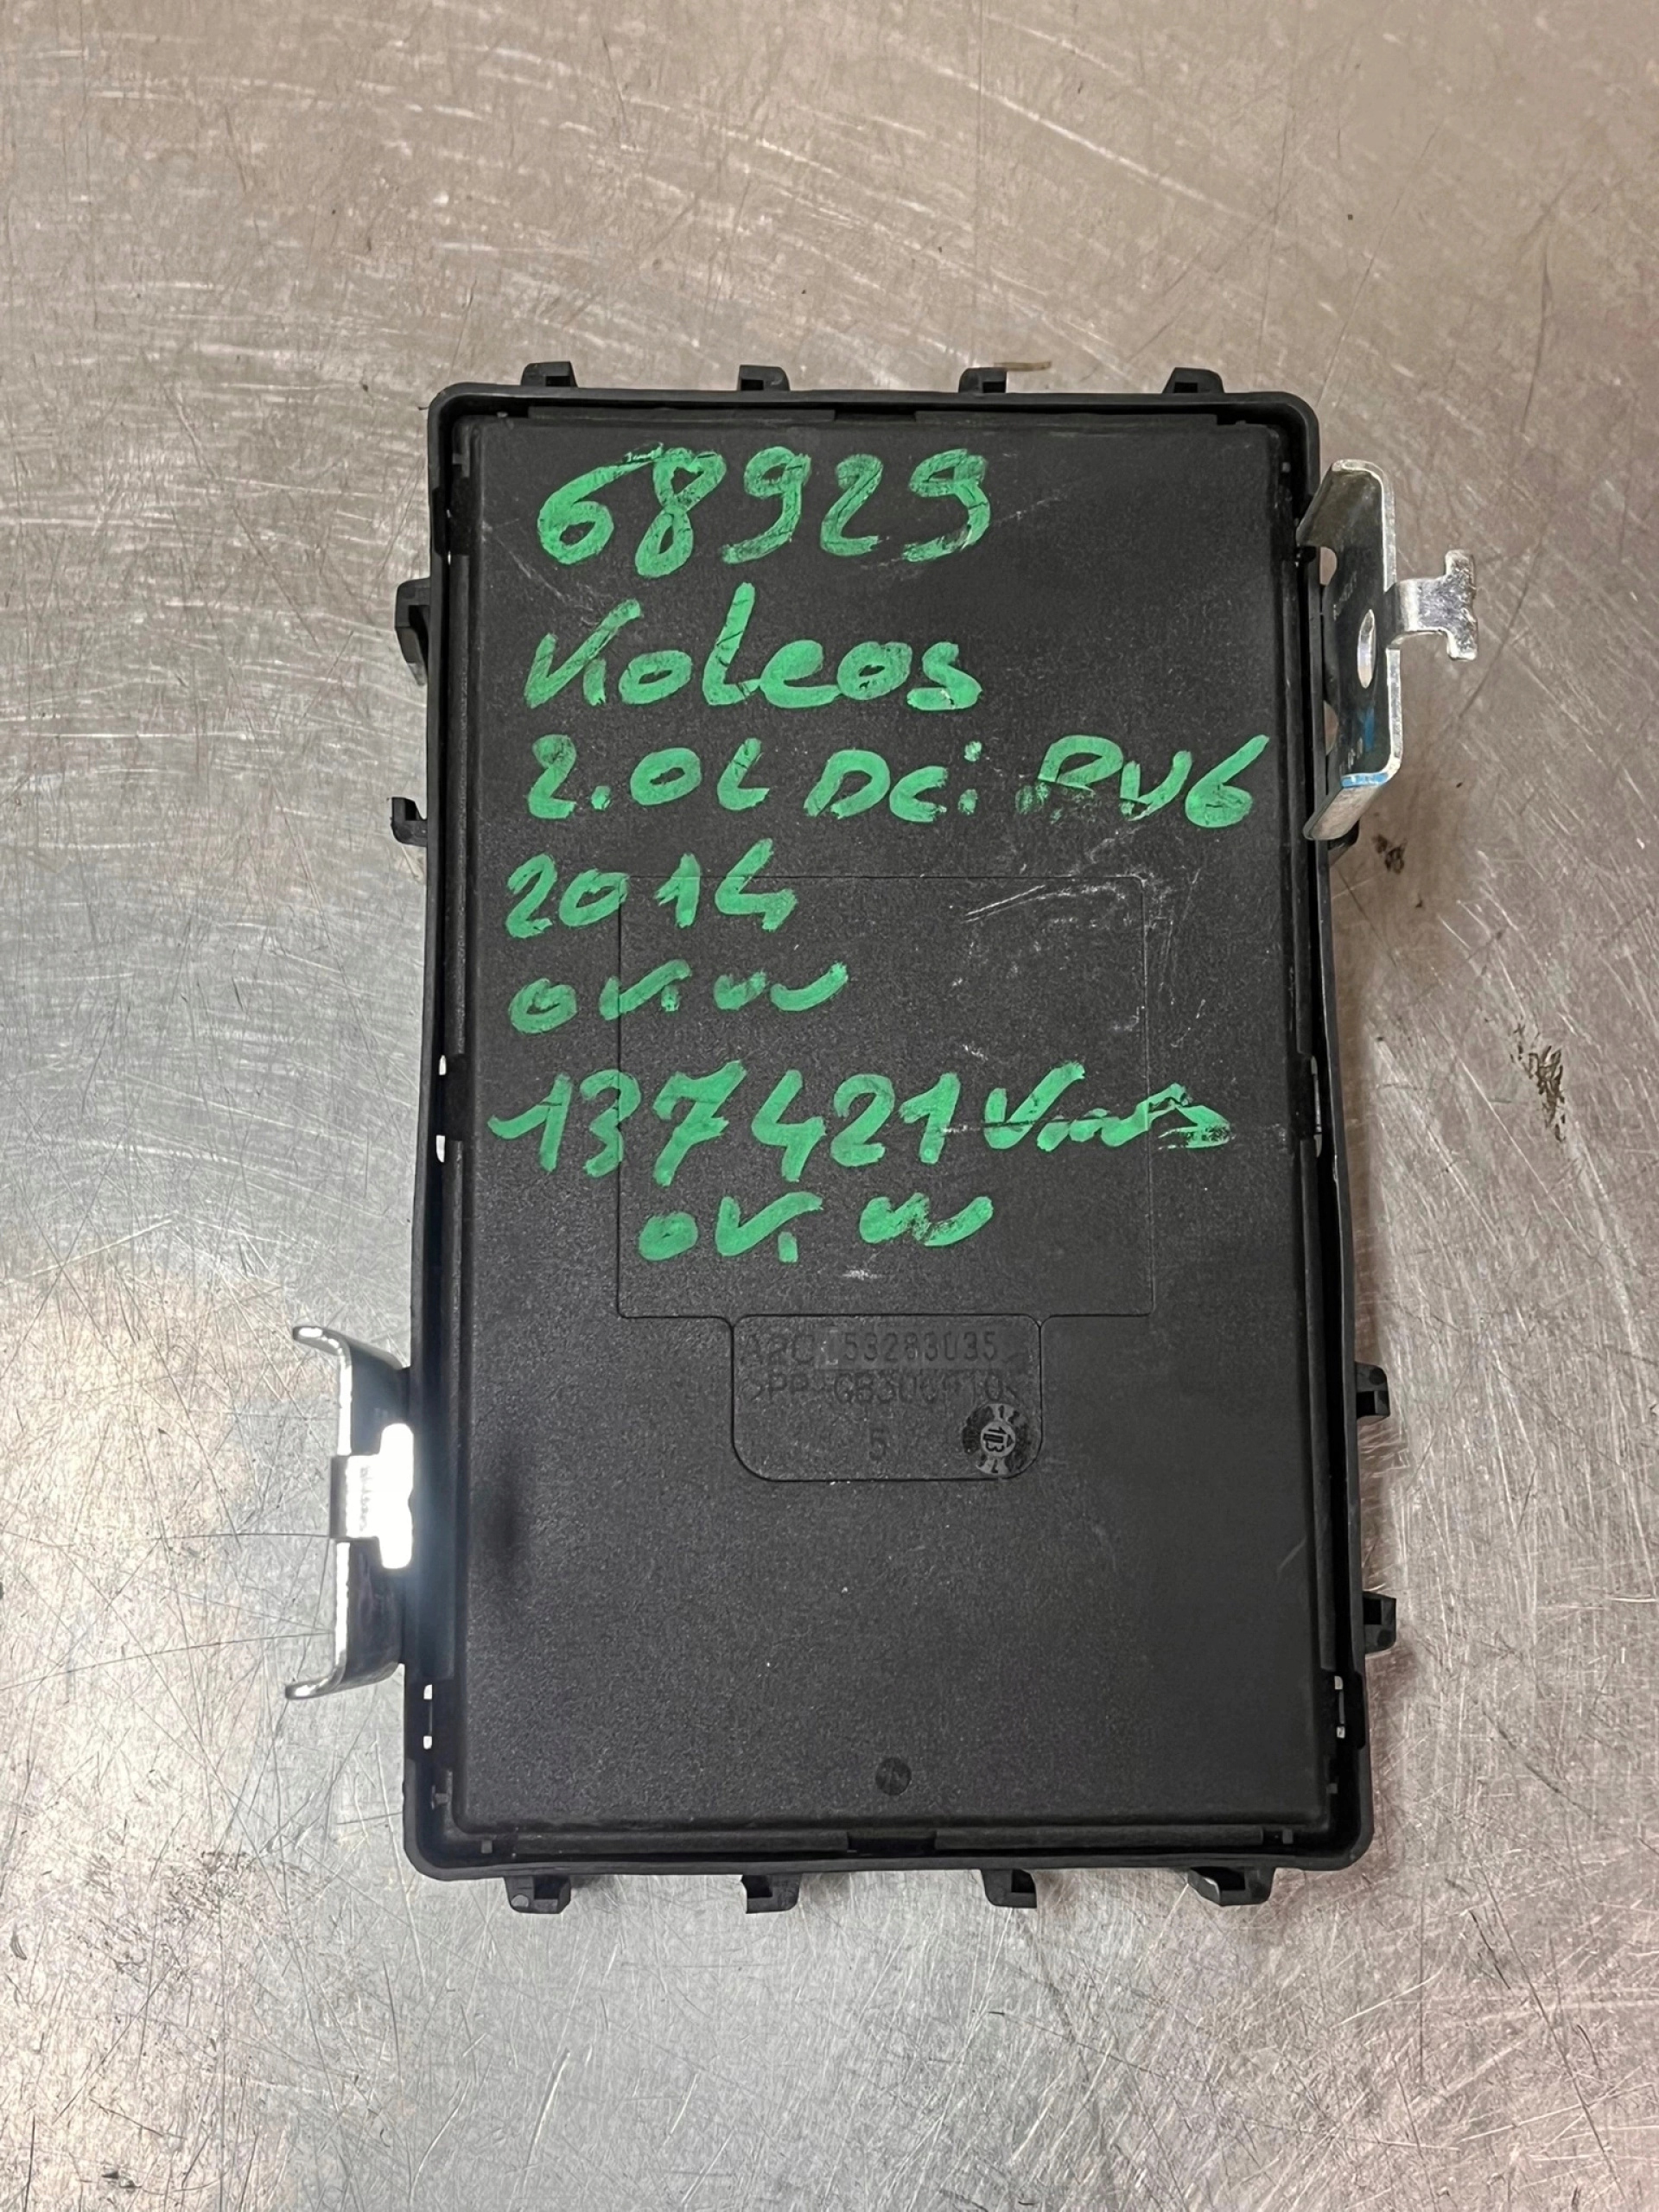 68929
Koleos
2.0L DCi BV6
2014
OK W
137421 Kms
OK W
A2C 53283035
>PP-GB30<
5